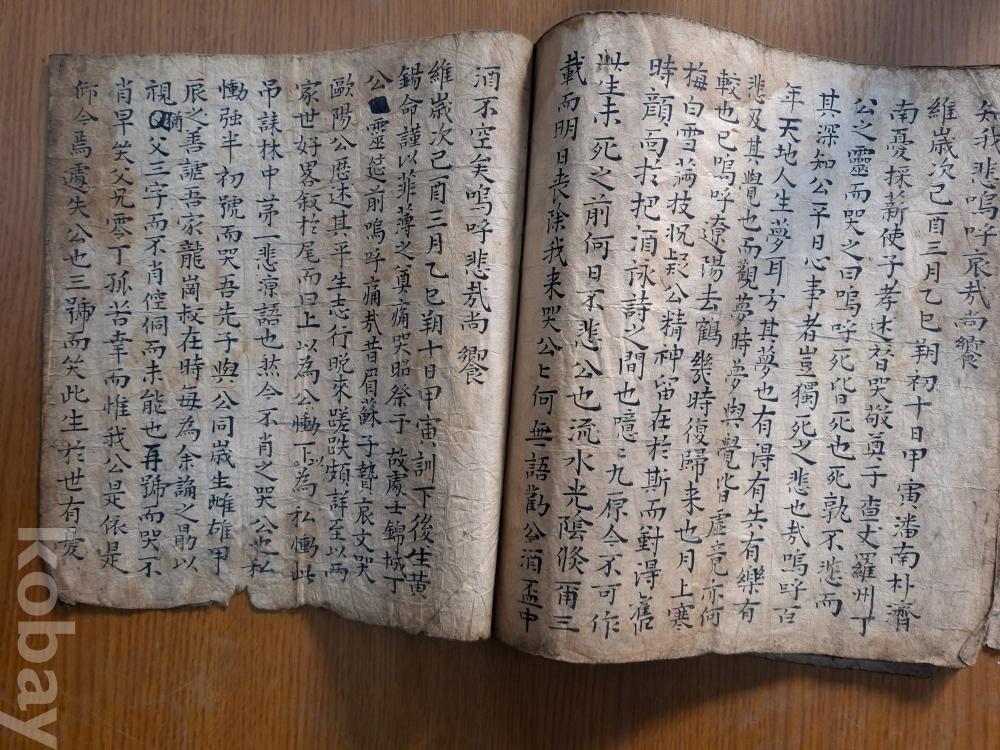 知我悲嗚呼哀哉尚饗
維歲次己酉三月乙巳朔初十日甲寅潘南朴濟
南憂採薪使子孝述替哭敬奠于查丈羅州丁
公之靈而哭之曰嗚呼死皆死也死孰不悲而
其深知公平日心事者豈獨死之悲也哉嗚呼百
年天地人生夢耳方其夢也有得有失有樂有
悲及其覺也而觀夢時夢與覺皆虛竟亦何
較也已嗚呼遼陽去鶴幾時復歸来也月上寒
梅白雪滿枝怳疑公精神留在於斯而對得舊
時顔面於把酒詠詩之間也噫噫九原今不可作
此生未死之前何日不悲公也流水光陰倐爾三
載而明日丧除我来哭公公何無語勸公酒盃中
酒不空矣嗚呼悲哉尚饗
維歲次己酉三月乙巳朔十日甲寅訓下後生黄
錫命謹以菲薄之奠痛哭昭祭于故處士錦城丁
公靈莚前嗚呼痛哉昔眉蘇子贄㡆文哭
歐陽公歷述其平生志行晚來蹉跌頗詳至以两
家世好畧叙於尾而曰上以為公慟下以為私慟此
吊誄林中第一悲凉語也然今不肖之哭公也私
慟强半初號而哭吾先子與公同歲生雌雄甲
辰之善謔吾家龍崗叔在時每為余論之勗以
視猶父三字而不肖倥侗而未能也再號而哭不
肖早失父兄零丁孤苦幸而惟我公是依是
仰今焉遽失公也三號而哭此生於世有憂
kobay